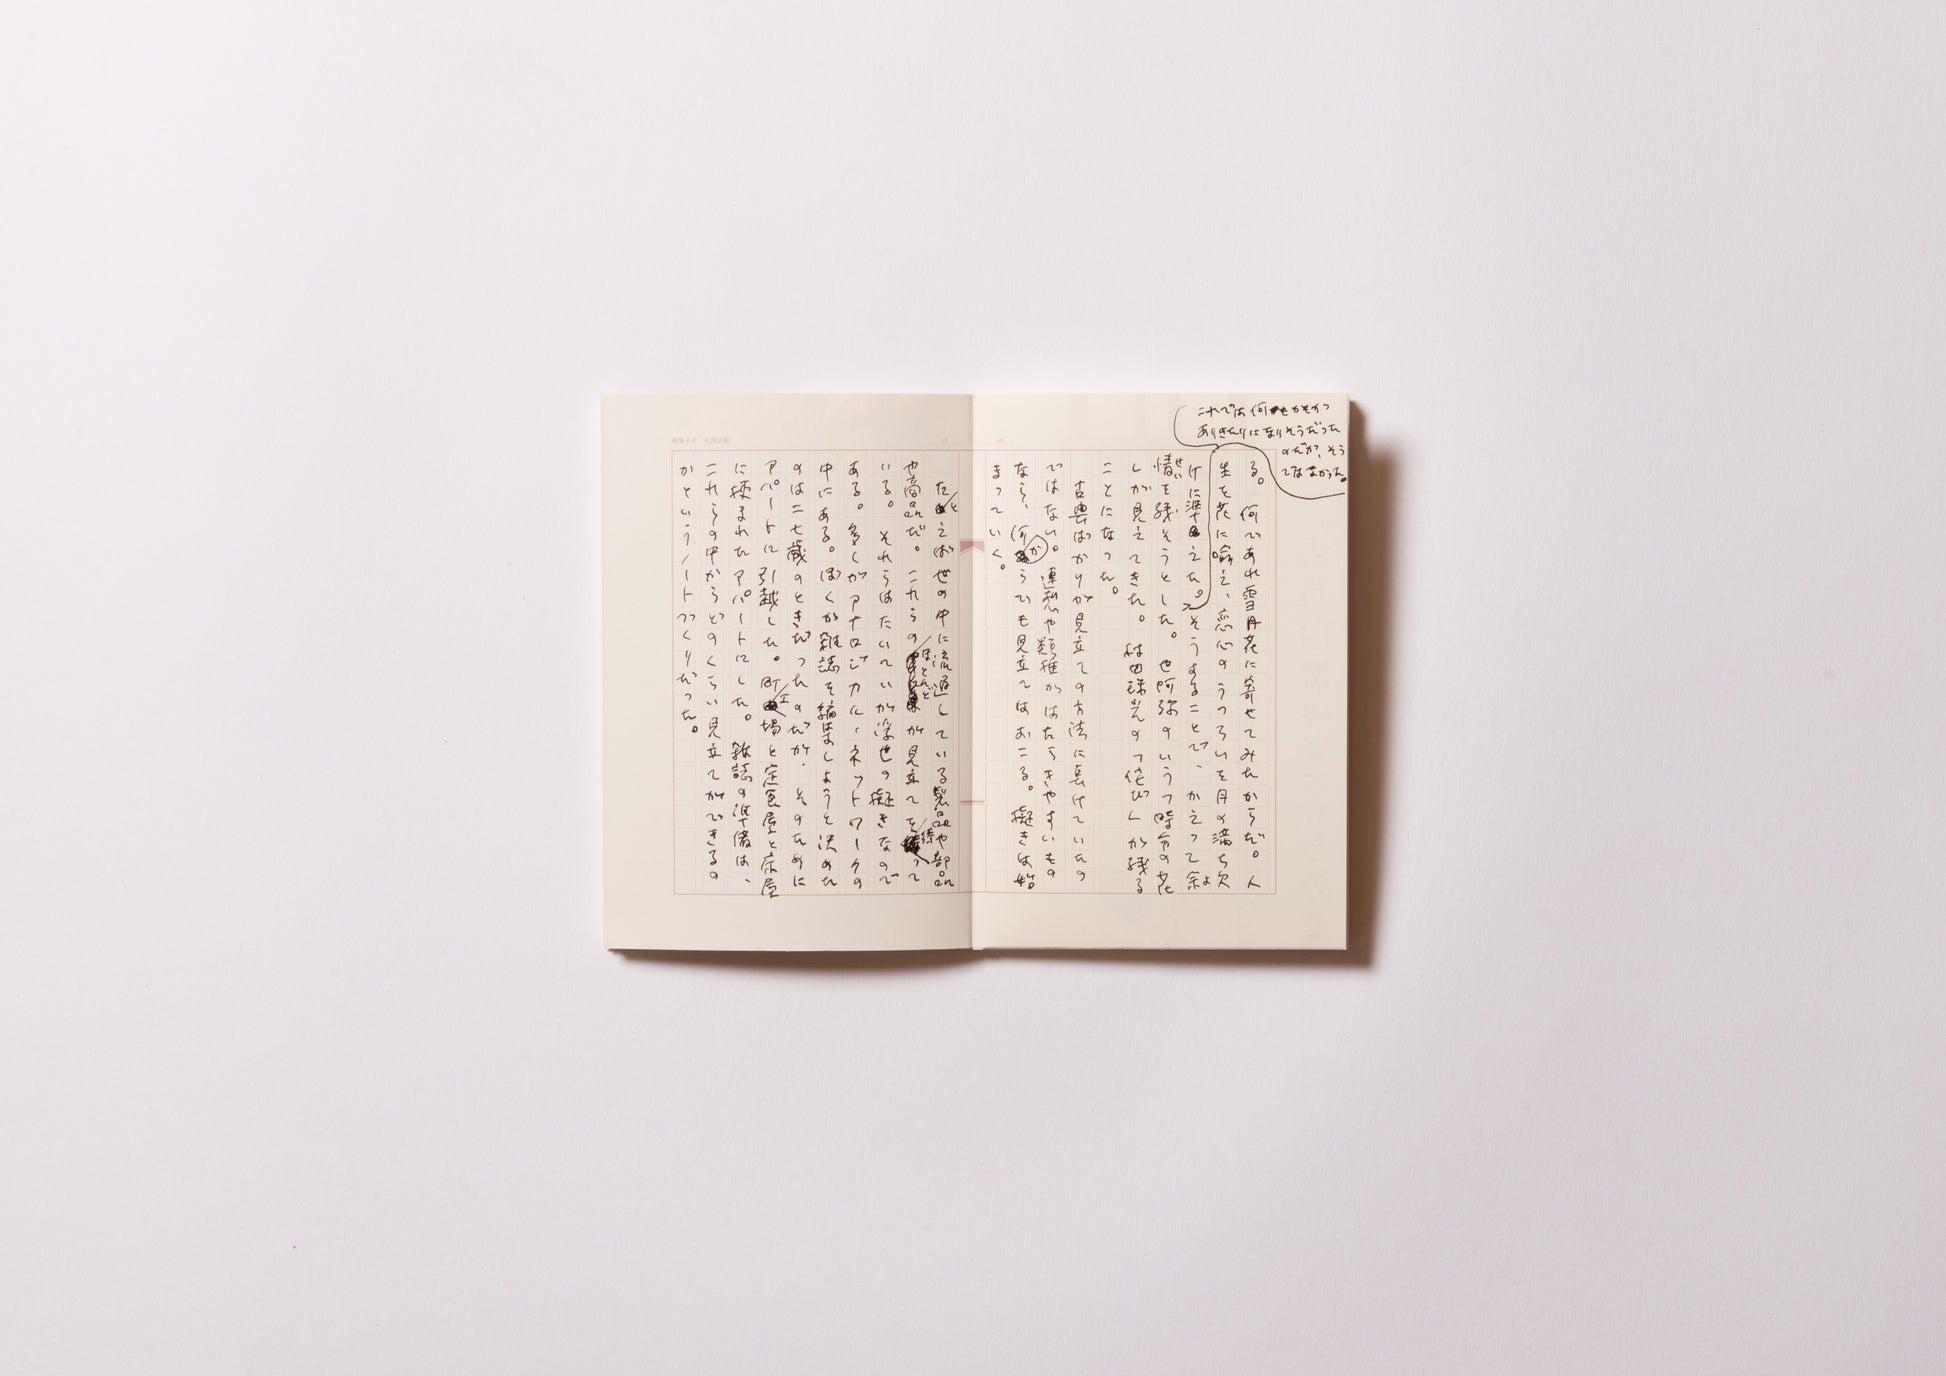 これでは何もかもかつ
ありきたりになりそうだった
のだが、そう
ではなかった。
る。何であれ雪月花に寄せてみたからだ。人
生を花に喩え、恋心のうつろいを月の満ち欠
けに準えた。そうすることで、かえって余
よ
情を残そうとした。世阿弥のいう「時分の花
せい
」が見えてきた。村田珠光の「侘び」が残る
ことになった。
古典ばかりが見立ての方法に長けていたの
ではない。連想や類推がはたらきやすいもの
なら、何からでも見立てはおこる。擬きは始
まっていく。
16
編集手本 松岡正剛
17
たとえば世の中に流通している製品や部品
や商品だ。これらのほとんどが見立てを使って
いる。それらはたいていが浮世の擬きなので
ある。多くがアナロジカル・ネットワークの
中にある。ぼくが雑誌を編集しようと決めた
のは二七歳のときだったのだが、そのために
アパートに引越した。町工場と定食屋と床屋
に挟まれたアパートにした。雑誌の準備は、
これらの中からどのくらい見立てができるの
かというノートづくりだった。